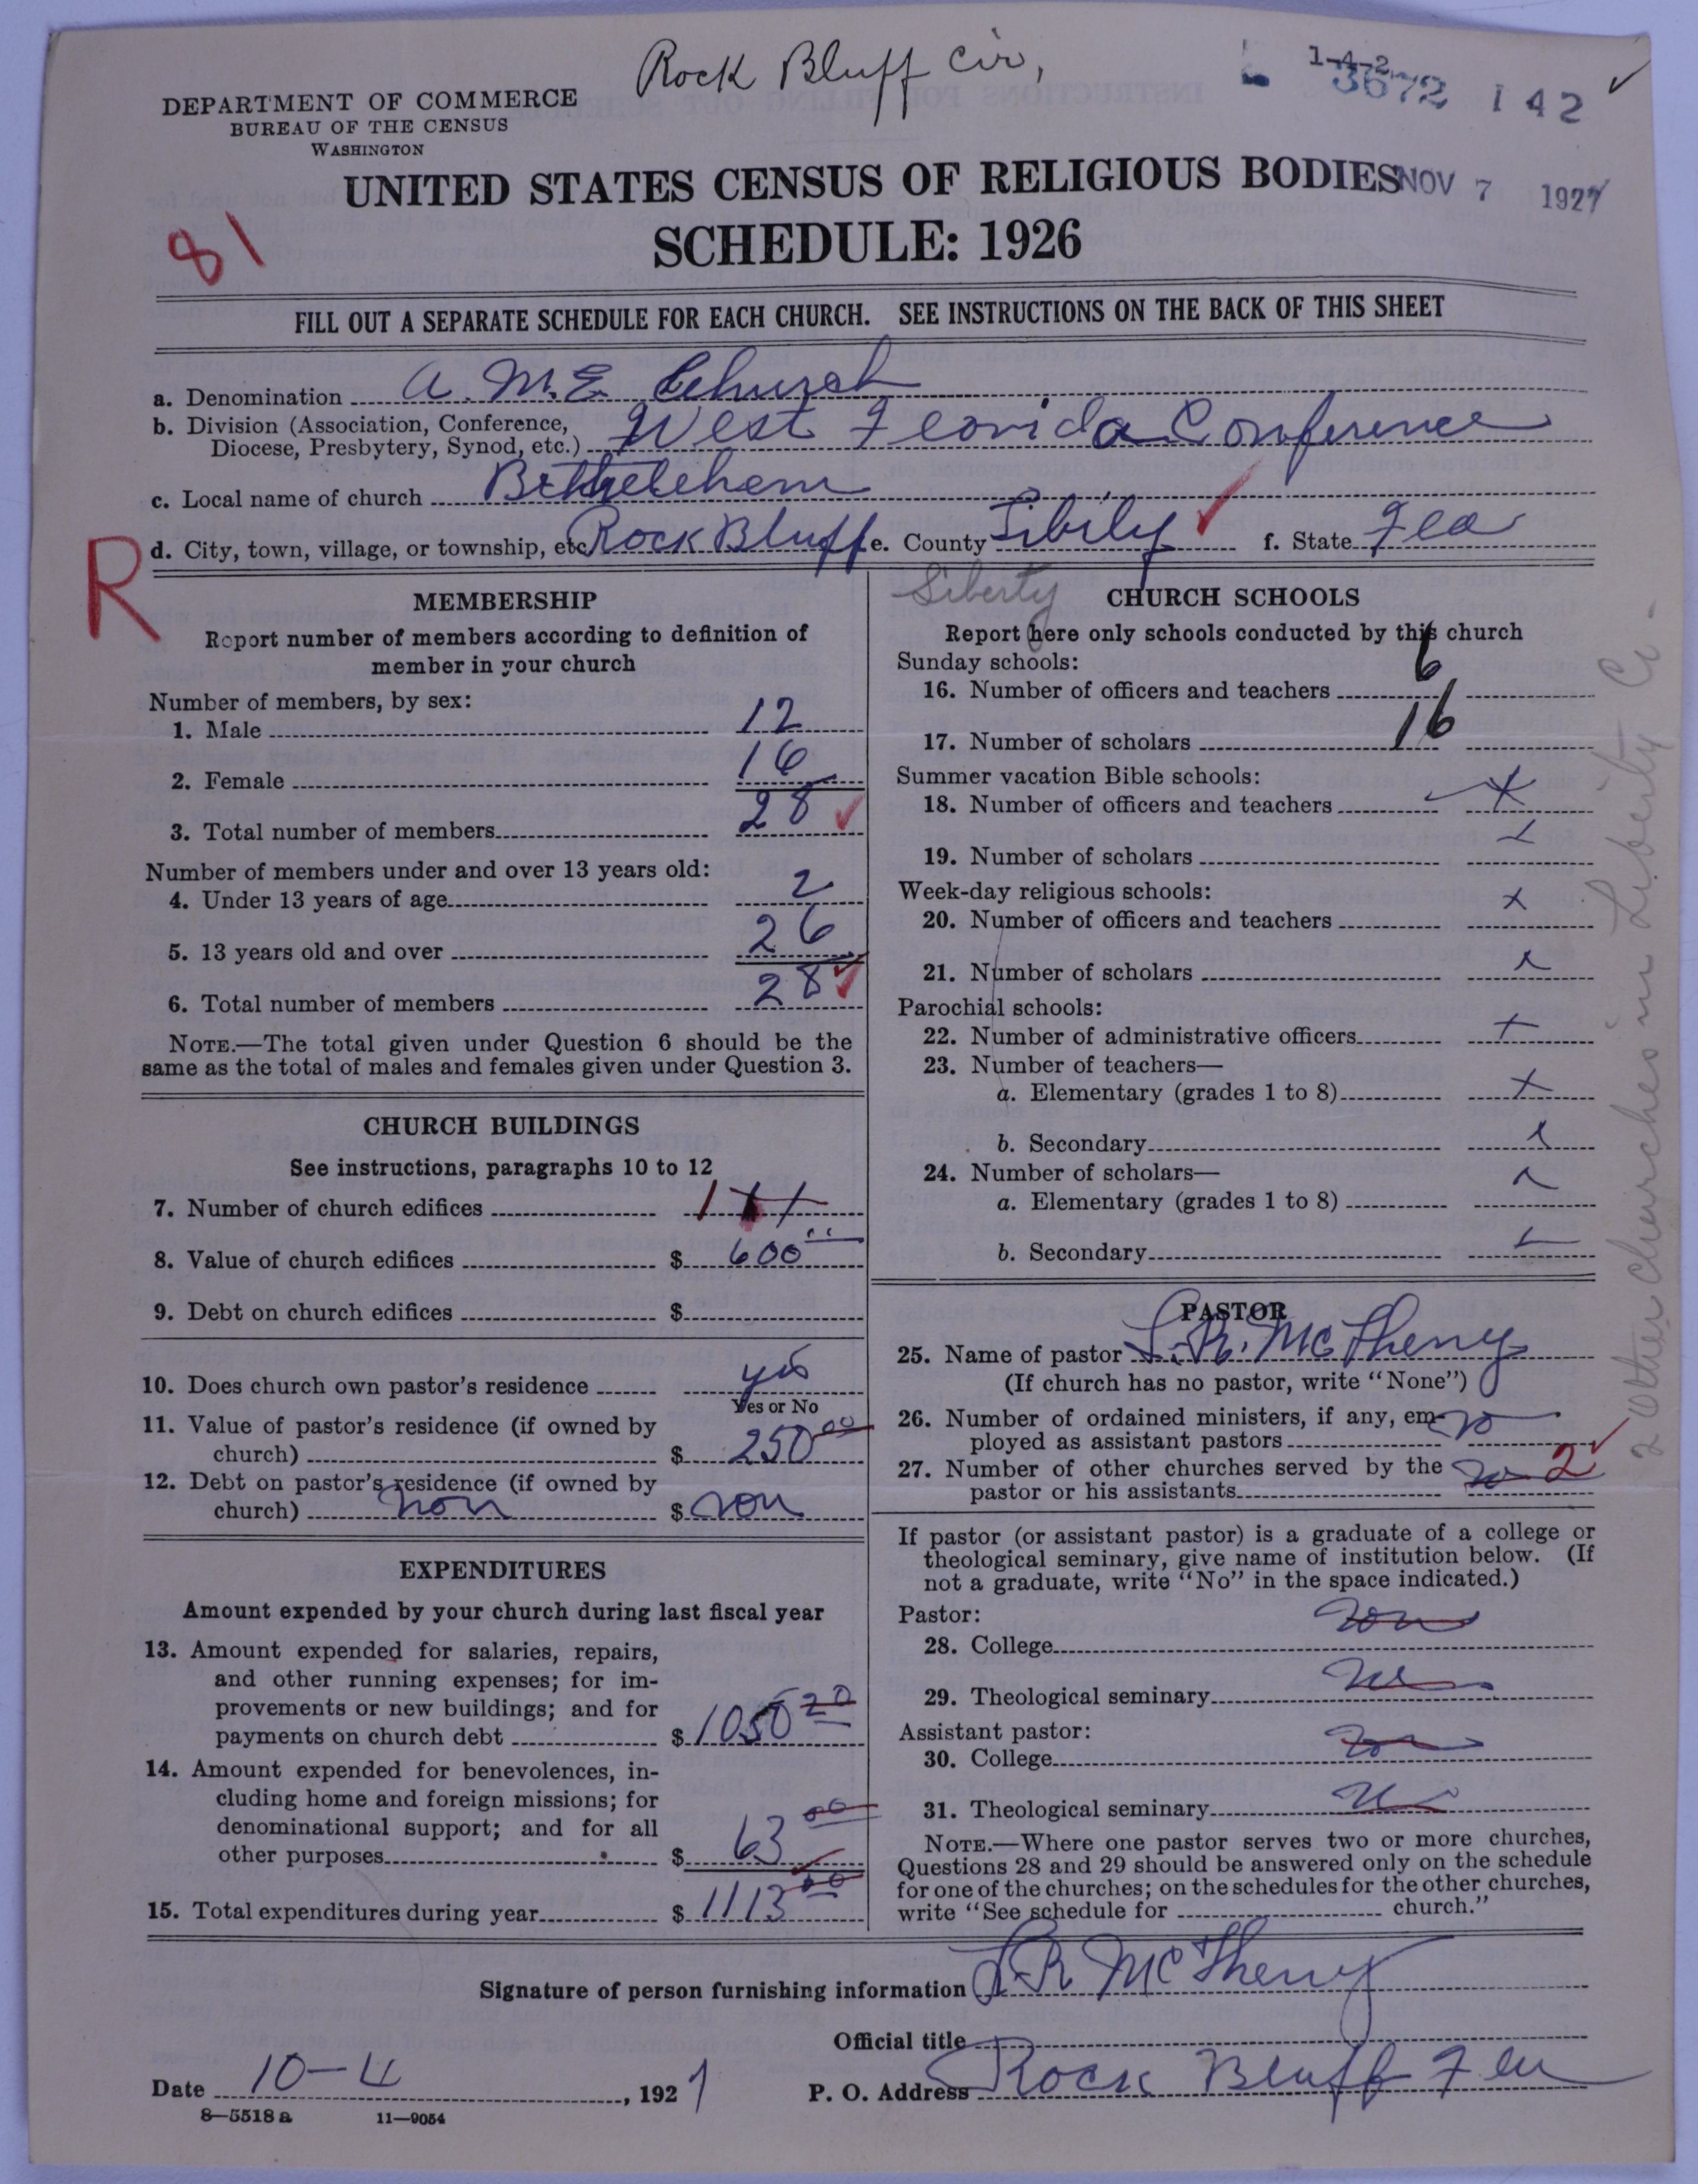 Rock Bluff Cir,
1-4-2
3672 142
DEPARTMENT OF COMMERCE
BUREAU OF THE CENSUS
WASHINGTON
UNITED STATES CENSUS OF RELIGIOUS BODIES
NOV 7 1927
SCHEDULE: 1926
81
FILL OUT A SEPARATE SCHEDULE FOR EACH CHURCH. SEE INSTRUCTIONS ON THE BACK OF THIS SHEET
a. Denomination A. M. E. Church
b. Division (Association, Conference,
Diocese, Presbytery, Synod, etc.) West Fleorida Conference
c. Local name of church Bethelehem
d. City, town, village, or township, etc Rock Bluff e. County Libily f. State Flea
R
Liberty
MEMBERSHIP
Report number of members according to definition of
member in your church
Number of members, by sex:
1. Male 12
2. Female 16
3. Total number of members 28
Number of members under and over 13 years old:
4. Under 13 years of age 2
5. 13 years old and over 26
6. Total number of members 28
NOTE.—The total given under Question 6 should be the
same as the total of males and females given under Question 3.
CHURCH BUILDINGS
See instructions, paragraphs 10 to 12
7. Number of church edifices 1
8. Value of church edifices $ 600
9. Debt on church edifices $
10. Does church own pastor's residence yes
Yes or No
11. Value of pastor's residence (if owned by
church) $ 250 00
12. Debt on pastor's residence (if owned by
church) non $ non
EXPENDITURES
Amount expended by your church during last fiscal year
13. Amount expended for salaries, repairs,
and other running expenses; for im-
provements or new buildings; and for
payments on church debt $ 1050 20
14. Amount expended for benevolences, in-
cluding home and foreign missions; for
denominational support; and for all
other purposes $ 63 00
15. Total expenditures during year $ 1113 00
CHURCH SCHOOLS
Report here only schools conducted by this church
Sunday schools:
16. Number of officers and teachers 6
17. Number of scholars 16
Summer vacation Bible schools:
18. Number of officers and teachers x
19. Number of scholars x
Week-day religious schools:
20. Number of officers and teachers x
21. Number of scholars x
Parochial schools:
22. Number of administrative officers x
23. Number of teachers—
a. Elementary (grades 1 to 8) x
b. Secondary x
24. Number of scholars—
a. Elementary (grades 1 to 8) x
b. Secondary x
PASTOR
25. Name of pastor L. R. McTheny
(If church has no pastor, write "None")
26. Number of ordained ministers, if any, em-
ployed as assistant pastors no
27. Number of other churches served by the
pastor or his assistants no 2
If pastor (or assistant pastor) is a graduate of a college or
theological seminary, give name of institution below. (If
not a graduate, write "No" in the space indicated.)
Pastor:
28. College non
29. Theological seminary
Assistant pastor:
30. College
31. Theological seminary
NOTE.—Where one pastor serves two or more churches,
Questions 28 and 29 should be answered only on the schedule
for one of the churches; on the schedules for the other churches,
write "See schedule for church."
2 other churches in Liberty Co.
Signature of person furnishing information L. R. McTheny
Official title
Date 10-4, 1927
P. O. Address Rock Bluff Flea
8—5518 a 11—9054